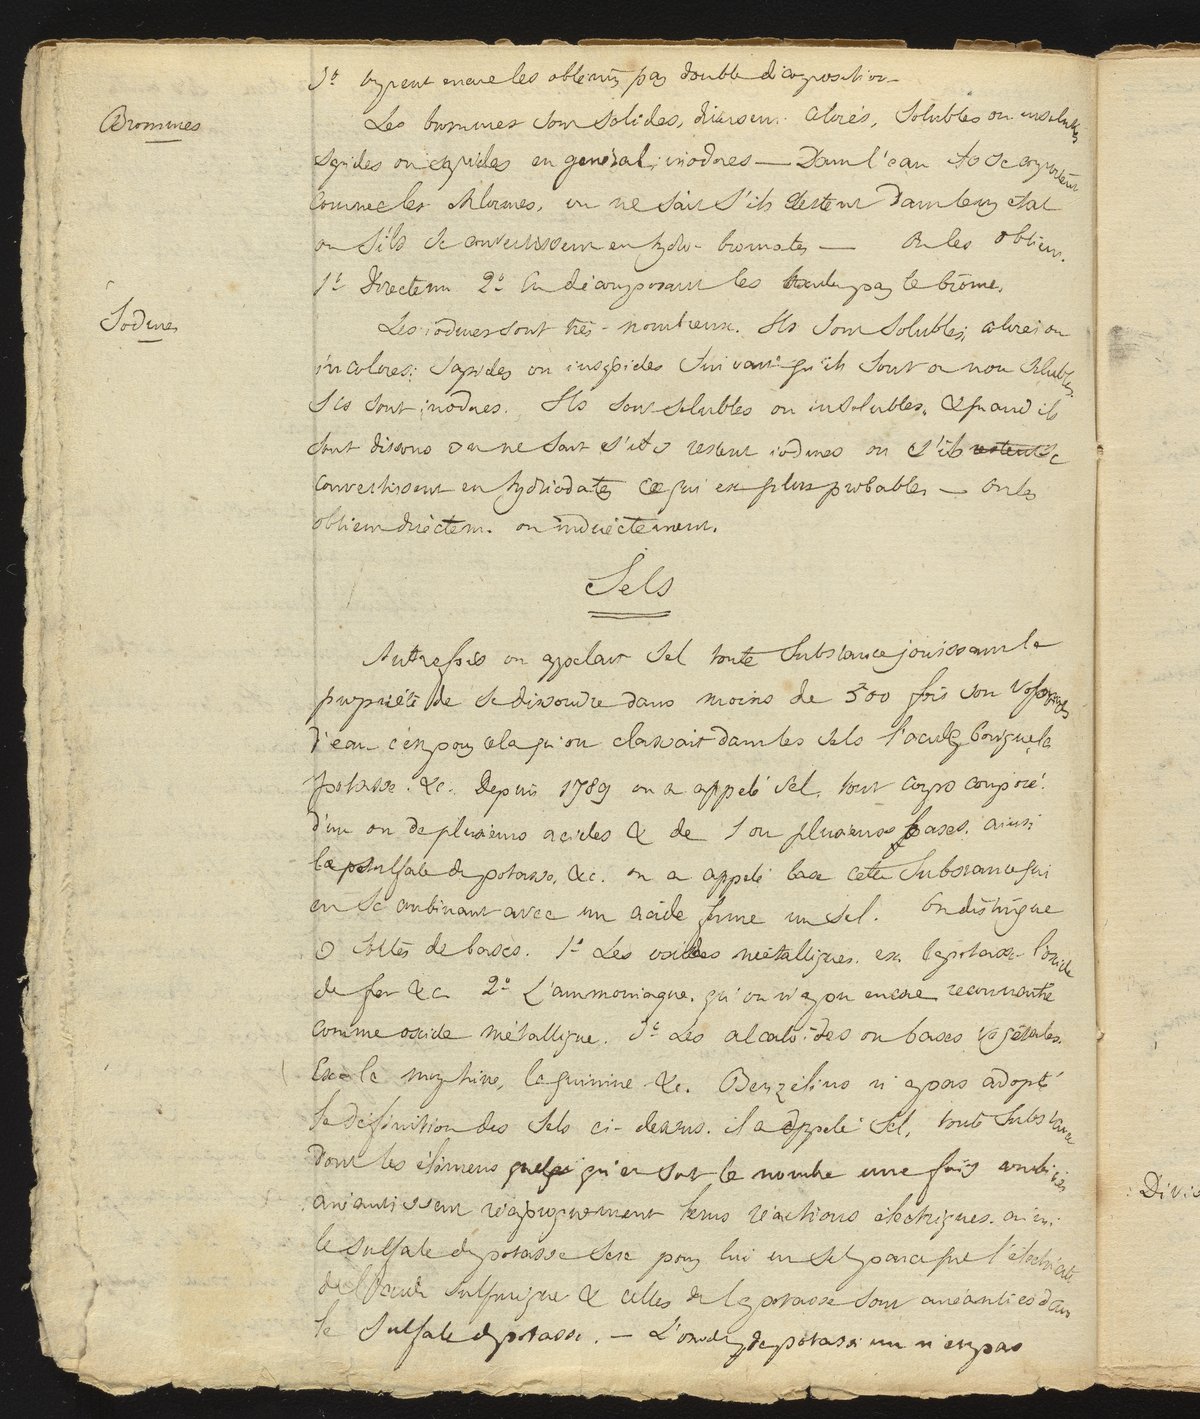 3º on peut encore les obtenir par double décomposition
Bromures
Les bromures sont solides, diversem. colorés, solubles ou insolubles
sapides ou insipides en général, inodores — Dans l'eau ils se comportent
comme les chlorures, on ne sait s'ils restent dans leur état
ou s'ils se convertissent en hydro-bromates — On les obtient.
1º Directem 2º En décomposant les par le brome.
Iodures
Les iodures sont très-nombreux. Ils sont solubles, colorés ou
incolores; sapides ou insipides suivant qu'ils sont ou non solubles
Ils sont inodores. Ils sont solubles ou insolubles, & quand ils
sont dissous on ne sait s'ils restent iodures ou s'ils restent se
convertissent en hydriodates ce qui est plus probable — On les
obtient directem. ou indirectement.
Sels
Autrefois on appelait Sel toute substance jouissant de la
propriété de se dissoudre dans moins de 500 fois son volume
d'eau c'est pour cela qu'on classait dans les sels l'acide borique, la
potasse. &c. Depuis 1789 on a appelé sel, tout corps composé
d'un ou de plusieurs acides & de 1 ou plusieurs bases. ainsi
le sulfate de potasse, &c. on a appelé base cette substance qui
en se combinant avec un acide forme un sel. On distingue
3 sortes de bases. 1º Les oxides métalliques. ex. la potasse l'oxide
de fer &c 2º L'ammoniaque. qu'on n'a pu encore reconnaitre
comme oxide métallique. 3º Les alcaloïdes ou bases végétales.
Ex. la morphine, la quinine &c. Berzélius n'a pas adopté
la définition des sels ci-dessus. il a appelé sel, toute substance
dont les élémens quelqu'en soit le nombre une fois combinés
anéantissent réciproquement leurs réactions électriques. ainsi
le sulfate de potasse sera pour lui un sel parce que l'électricité
de l'acide sulfurique & celles de la potasse sont anéanties dans
le sulfate de potasse. — L'oxide de potassium n'est pas
: Divis